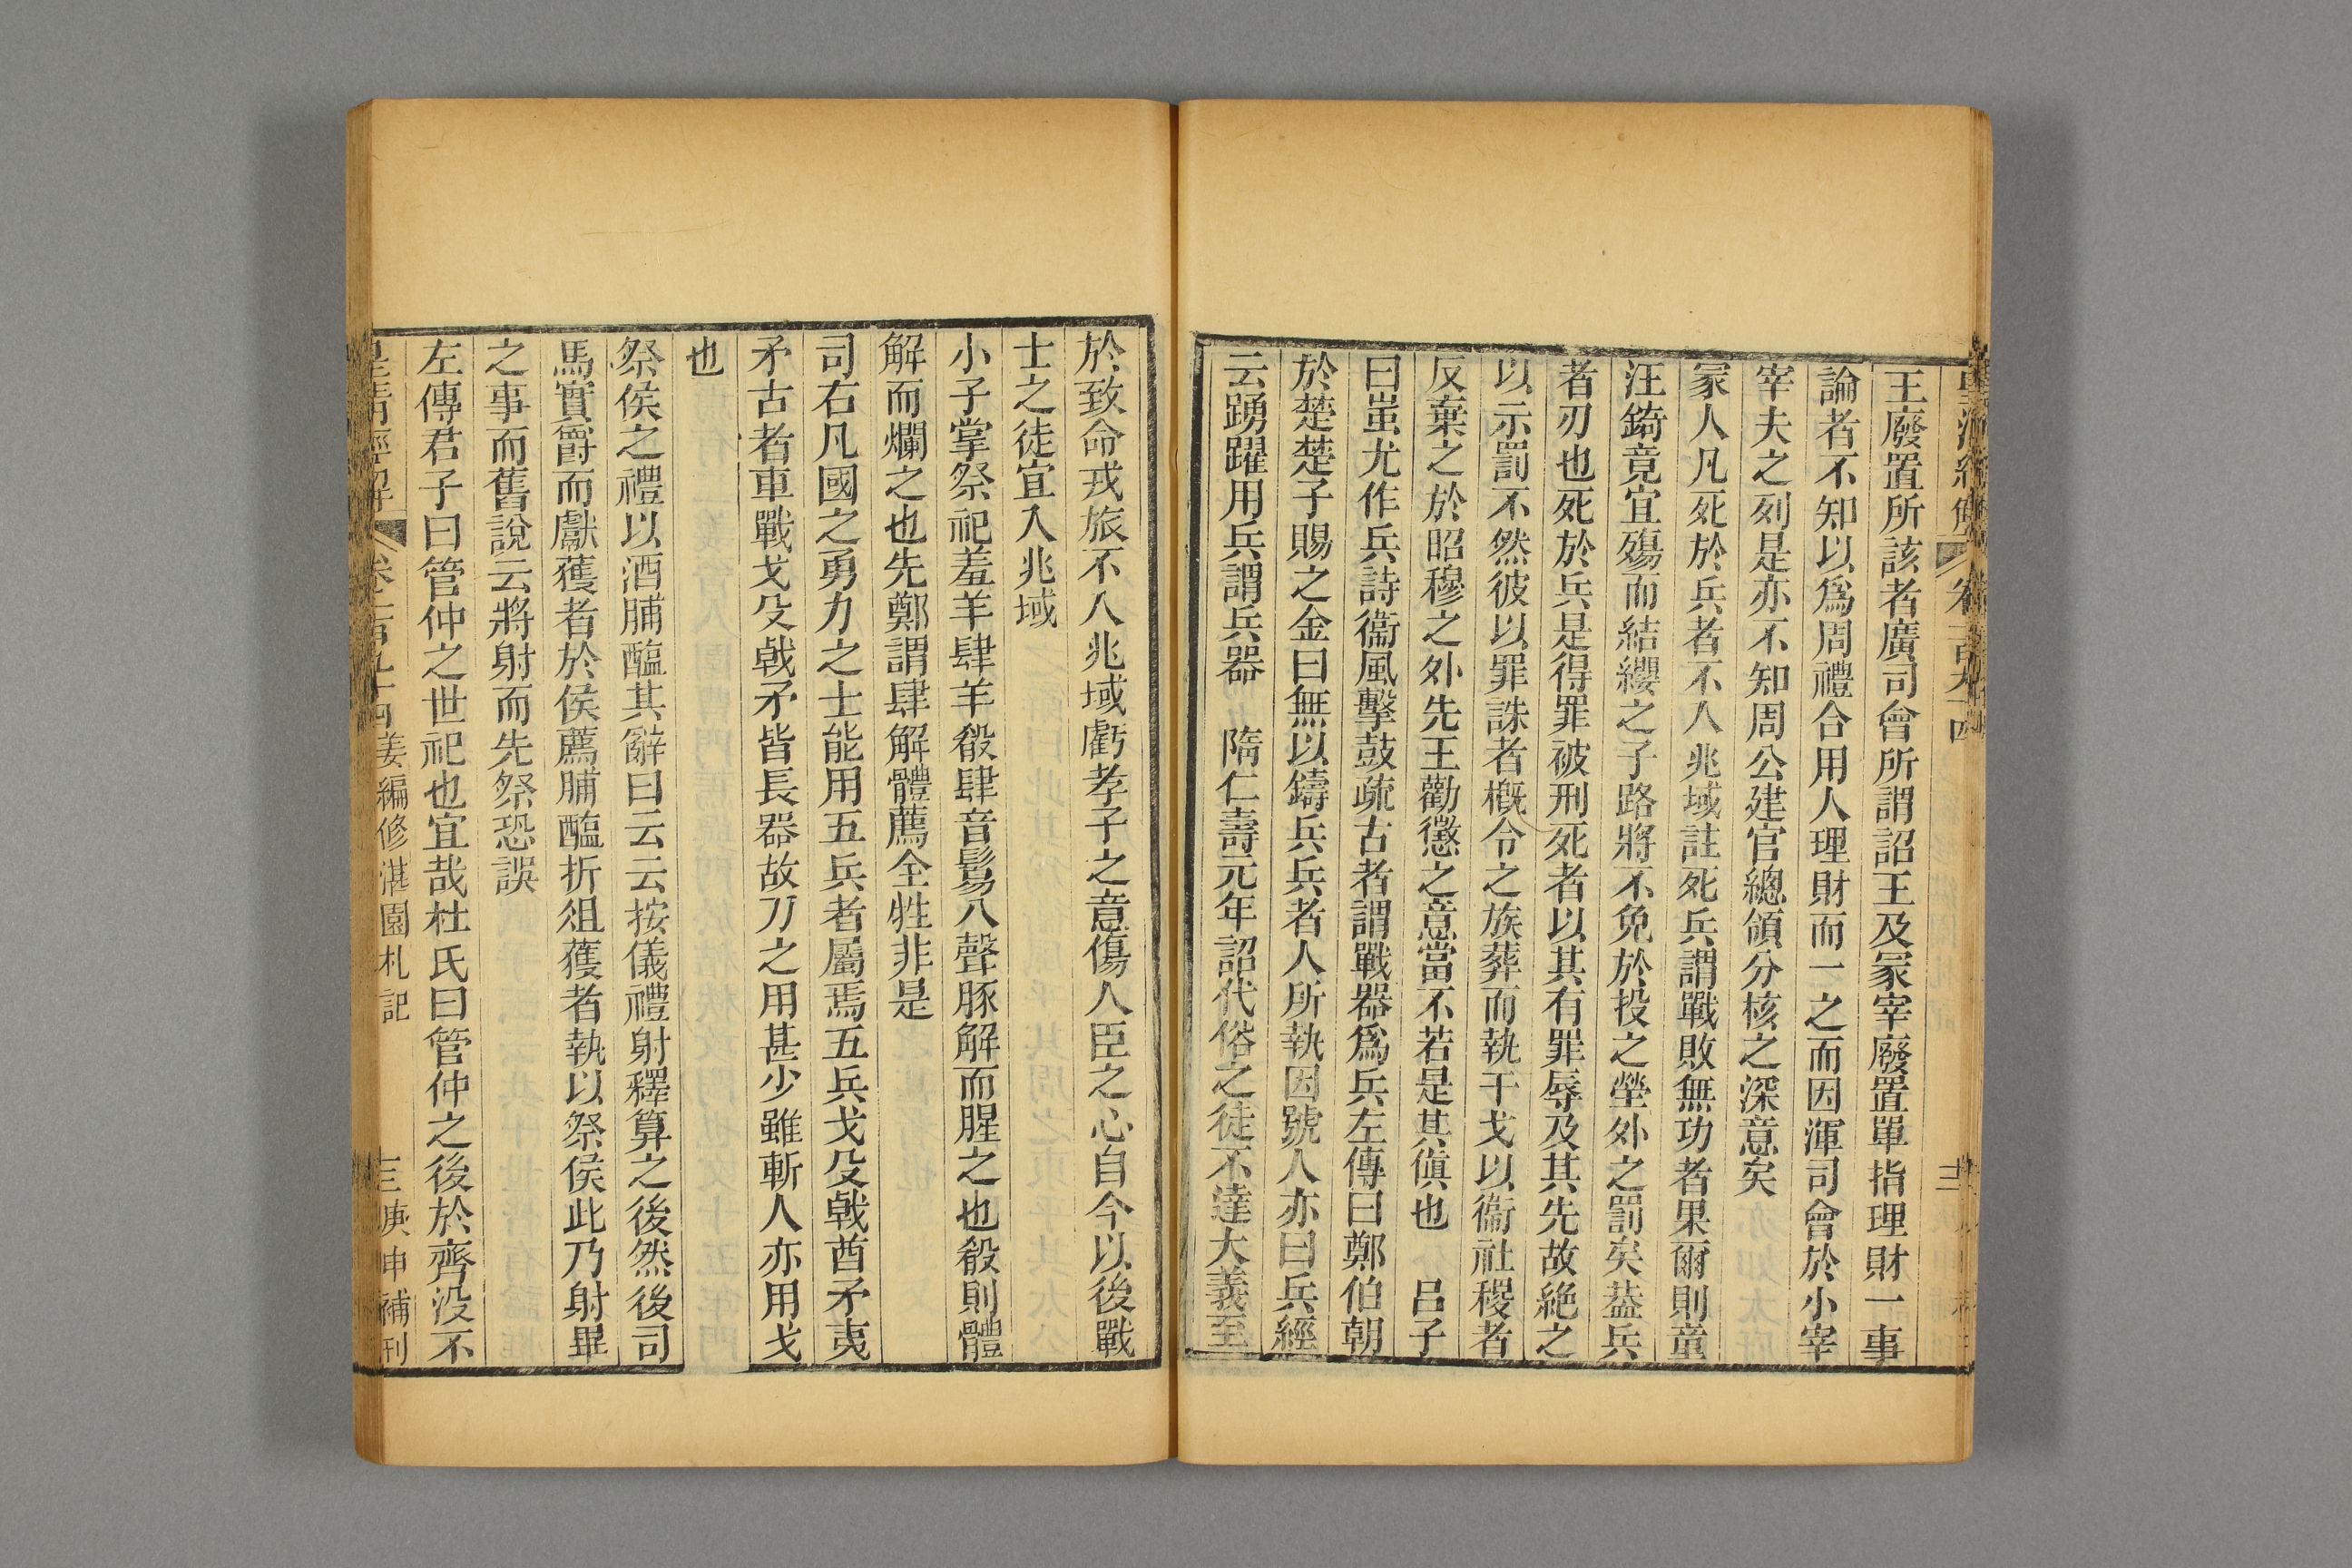 王廢置所該者廣司會所謂詔王及冢宰廢置單指理財一事
論者不知以爲周禮合用人理財而一之而因渾司會於小宰
宰夫之列是亦不知周公建官總領分核之深意矣
冢人凡死於兵者不入兆域註死兵謂戰敗無功者果爾則童
汪錡竟宜殤而結纓之子路將不免於投之塋外之罰矣葢兵
者刃也死於兵是得罪被刑死者以其有罪辱及其先故絶之
以示罰不然彼以罪誅者槪令之族葬而執干戈以衞社稷者
反棄之於昭穆之外先王勸懲之意當不若是其傎也　呂子
曰蚩尤作兵詩衞風擊鼓疏古者謂戰器爲兵左傳曰鄭伯朝
於楚楚子賜之金曰無以鑄兵兵者人所執因號人亦曰兵經
云踴躍用兵謂兵器　隋仁壽元年詔代俗之徒不達大義至
於致命戎旅不入兆域虧孝子之意傷人臣之心自今以後戰
士之徒宜入兆域
小子掌祭祀羞羊肆羊殽肆音鬄八聲豚解而腥之也殽則體
解而爛之也先鄭謂肆解體薦全牲非是
司右凡國之勇力之士能用五兵者屬焉五兵戈殳戟酋矛夷
矛古者車戰戈殳戟矛皆長器故刀之用甚少雖斬人亦用戈
也
祭侯之禮以酒脯醢其辭曰云云按儀禮射釋算之後然後司
馬實爵而獻獲者於侯薦脯醢折俎獲者執以祭侯此乃射畢
之事而舊說云將射而先祭恐誤
左傳君子曰管仲之世祀也宜哉杜氏曰管仲之後於齊没不
皇淸經解　卷一百九十四　姜編修湛園札記　三　庚申補刊